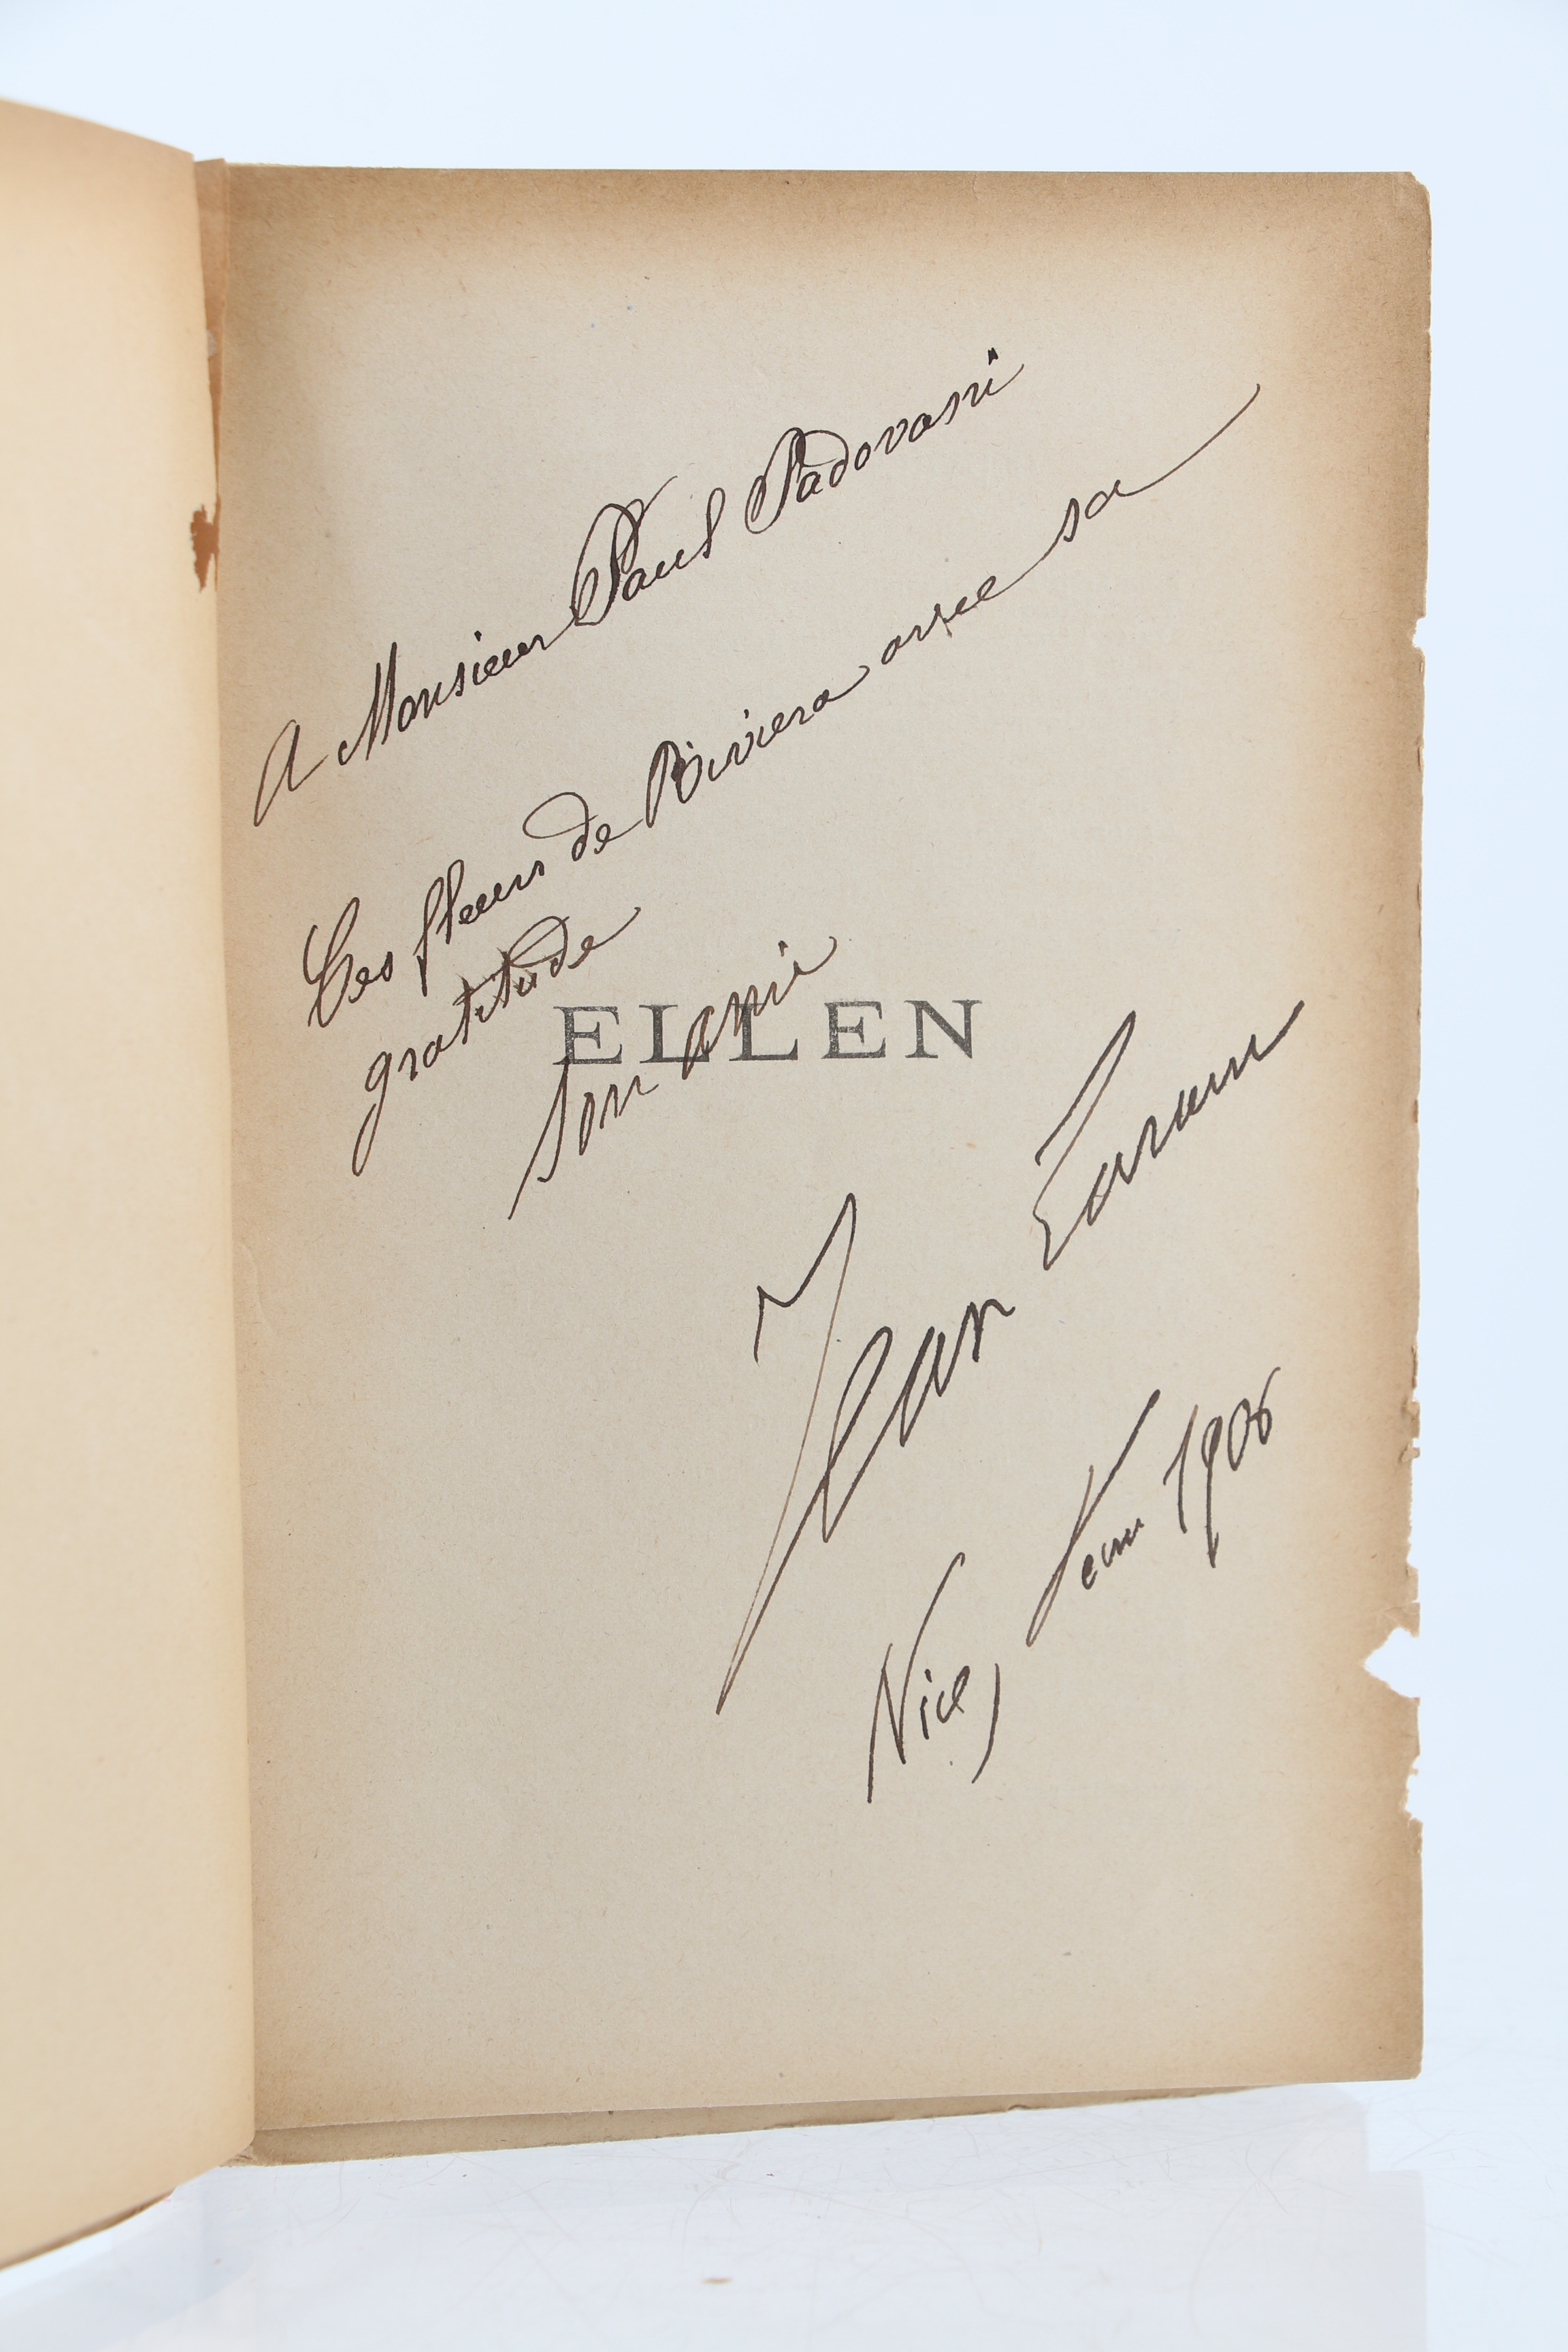 A Monsieur Paul Padovani
Ces fleurs de Riviera avec sa
gratitude
son ami
ELLEN
Jean Lorrain
Nice, 1906